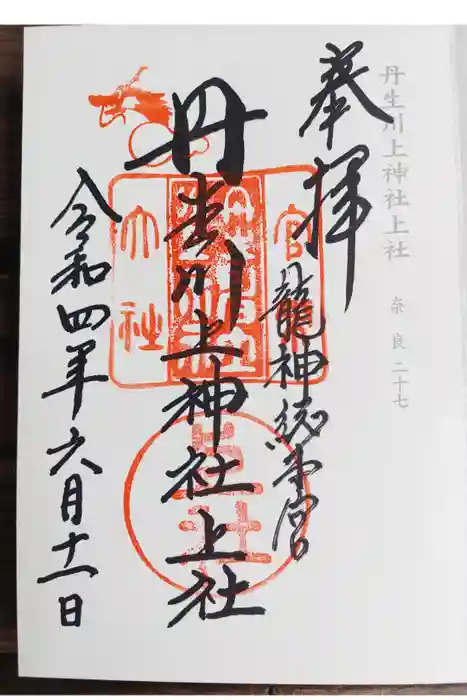 丹生川上神社上社 奈良二十七
奉拝
龍神総本宮
丹生川上神社上社
官幣大社
上社
令和四年六月十一日